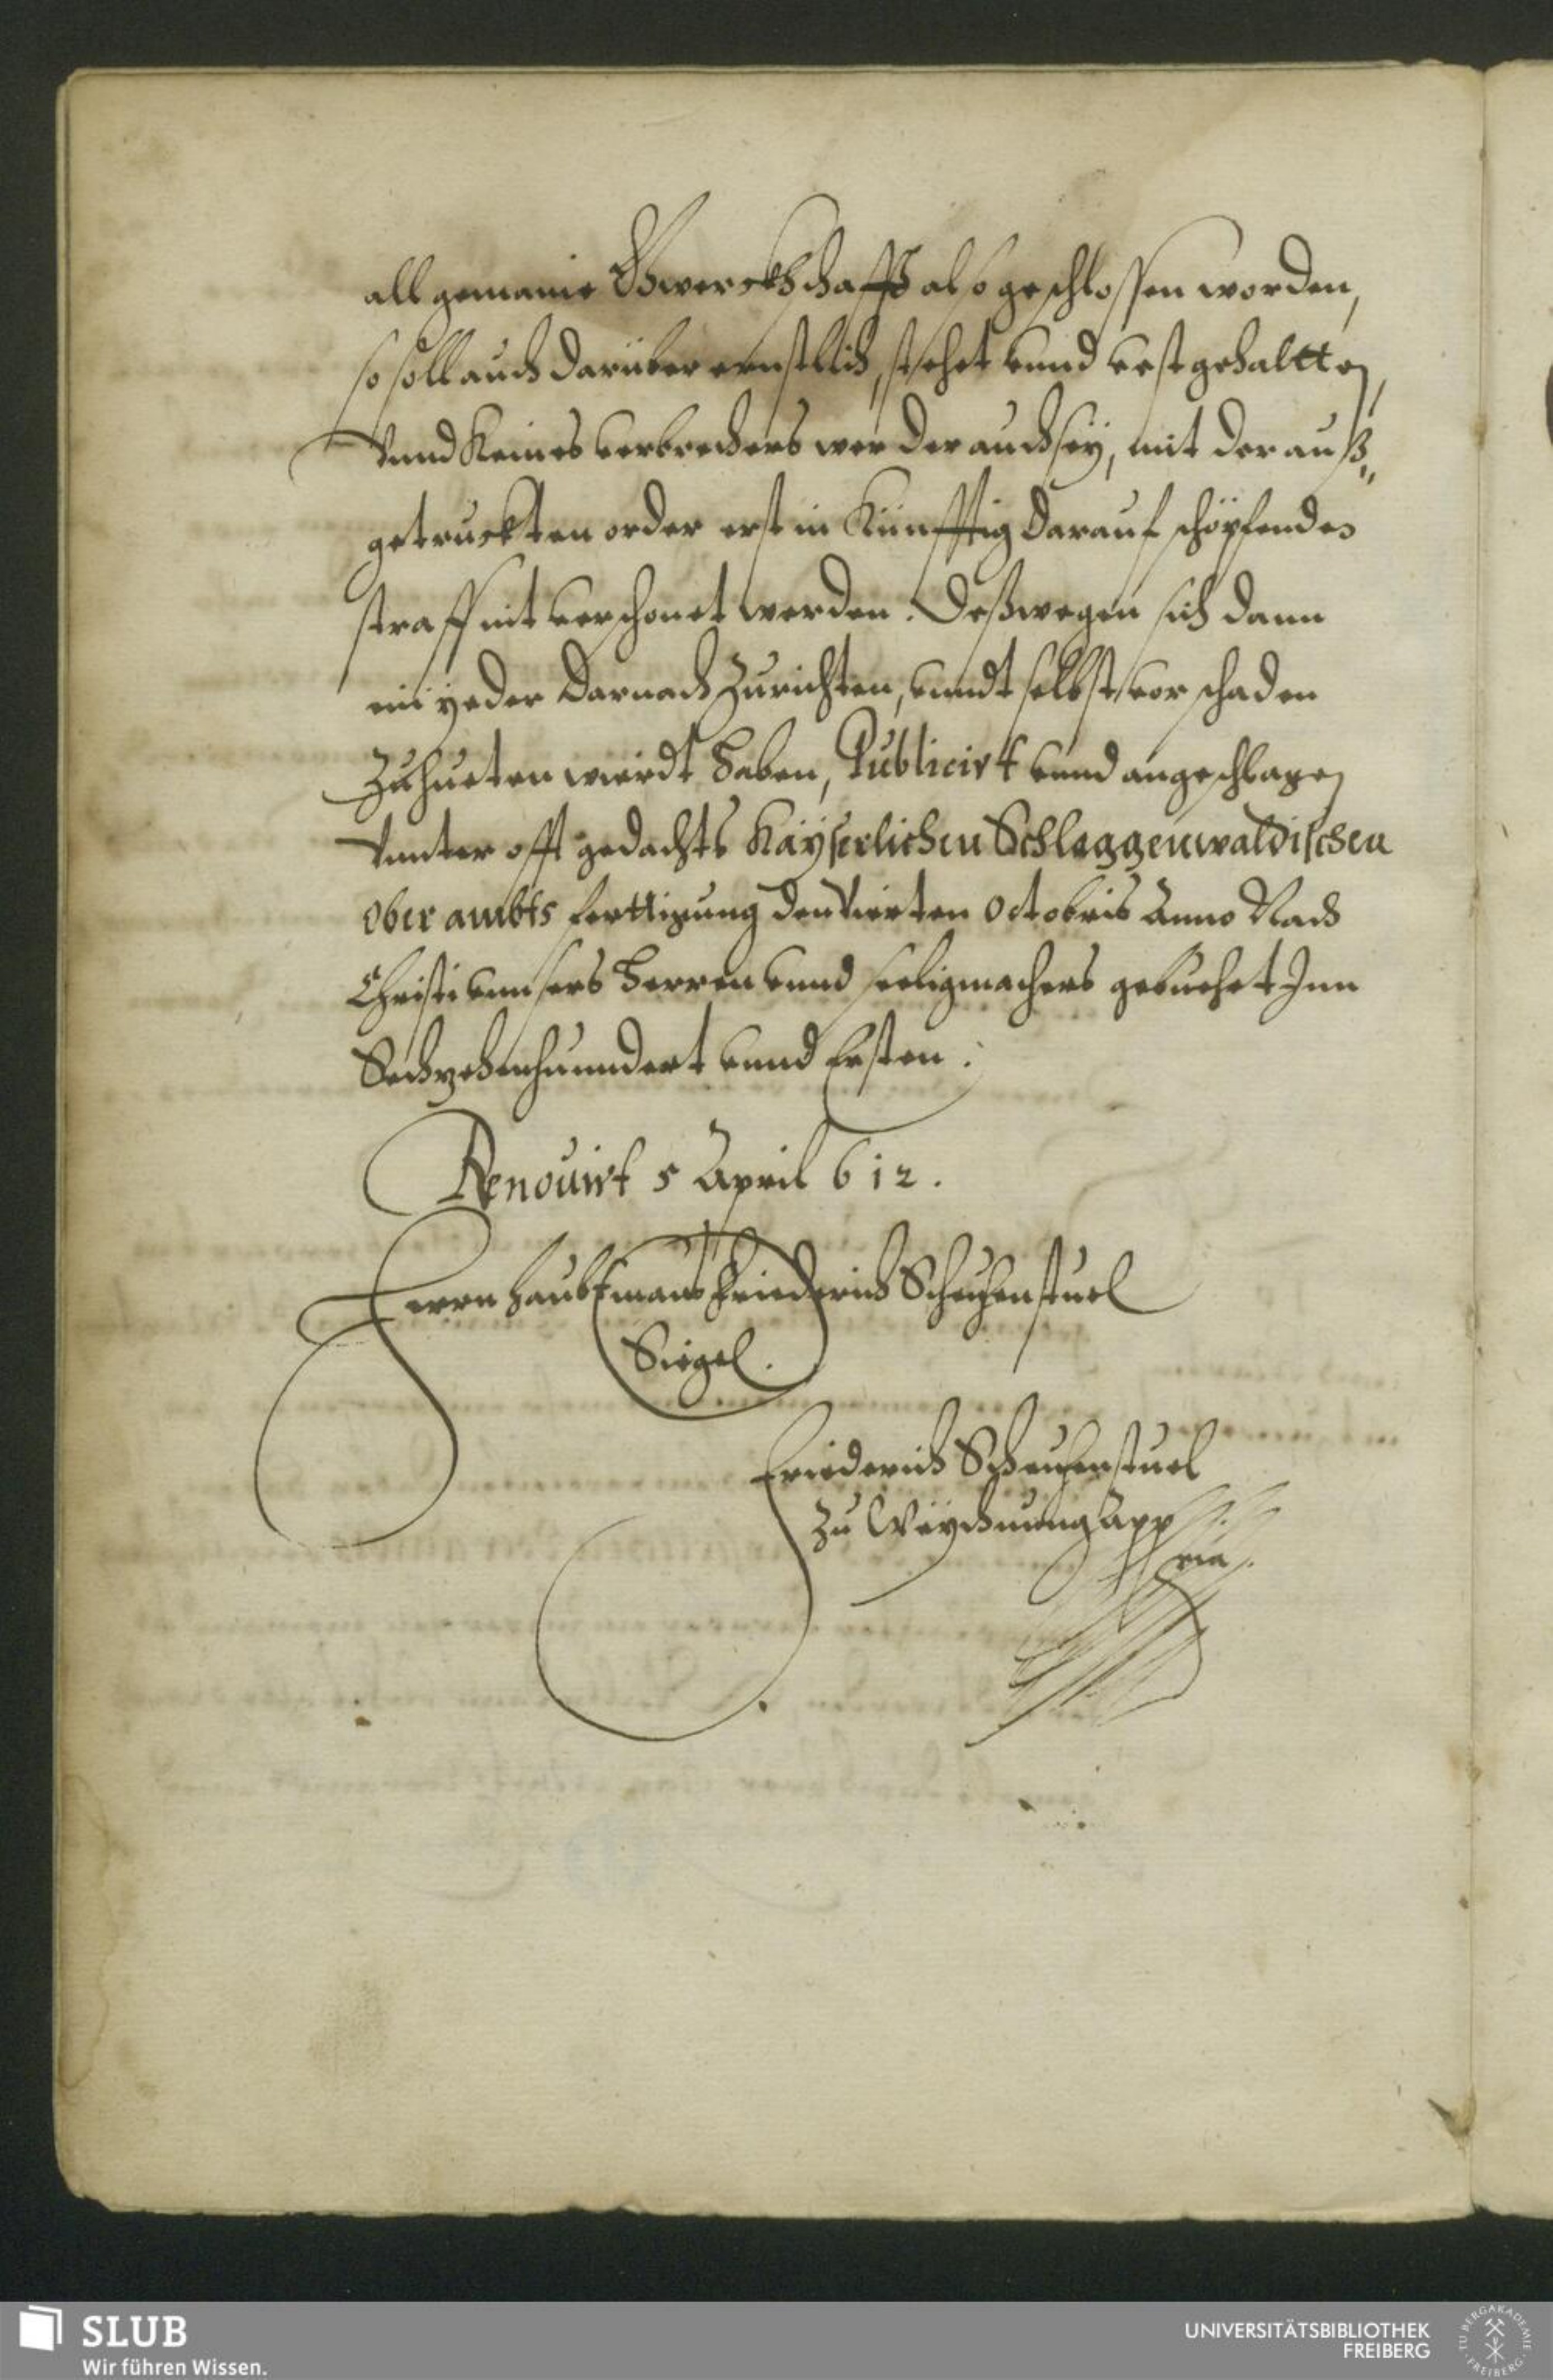 all gemaine Gwerckhschafft also geschlossen worden,
so soll auch darüber ernstlich, stehet vnnd vest gehaltten,
Vnnd keines verbrechers wer der auch sey, mit der auß„
getruckten order erst in künfftig darauf schöpfenden
straff nit verschonet werden. Deßwegen sich dann
ein yeder darnach Zurichten, vnndt selbst vor schaden
Zuhueten wierdt haben, Publicirt vnnd angeschlagen
Vnnter offt gedachts Kaÿserlichen Schlaggenwaldischen
Ober ambts ferttigung den Vierten Octobris Anno Nach
Christi vnnsers Herren vnnd seeligmachers gebuehrt Im
Sechzehenhunndert vnnd Ersten.
Renouirt 5 April 612.
Herrn Haubtmans Friederich Scheuhenstuel
Siegel.
Friederich Scheuhenstuel
Zu App
ria
SLUB
Wir führen Wissen.
UNIVERSITÄTSBIBLIOTHEK
FREIBERG
TU BERGAKADEMIE
FREIBERG